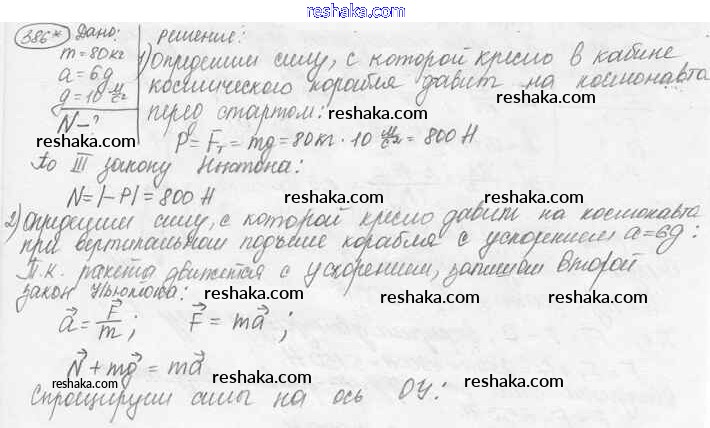 386* Дано: Решение:
m = 80 кг
a = 6g
g = 10 м/с²
N - ?
1) Определим силу, с которой кресло в кабине
космического корабля давит на космонавта
перед стартом:
P = Fт = mg = 80 кг · 10 м/с² = 800 Н
По III закону Ньютона:
N = |-P| = 800 Н
2) Определим силу, с которой кресло давит на космонавта
при вертикальном подъеме корабля с ускорением a = 6g:
Т.к. ракета движется с ускорением, запишем второй
закон Ньютона:
a⃗ = F⃗/m; F⃗ = ma⃗;
N⃗ + mg⃗ = ma⃗
Спроецируем силы на ось OY:
reshaka.com
reshaka.com
reshaka.com
reshaka.com
reshaka.com
reshaka.com
reshaka.com
reshaka.com
reshaka.com
reshaka.com
reshaka.com
reshaka.com
reshaka.com
reshaka.com